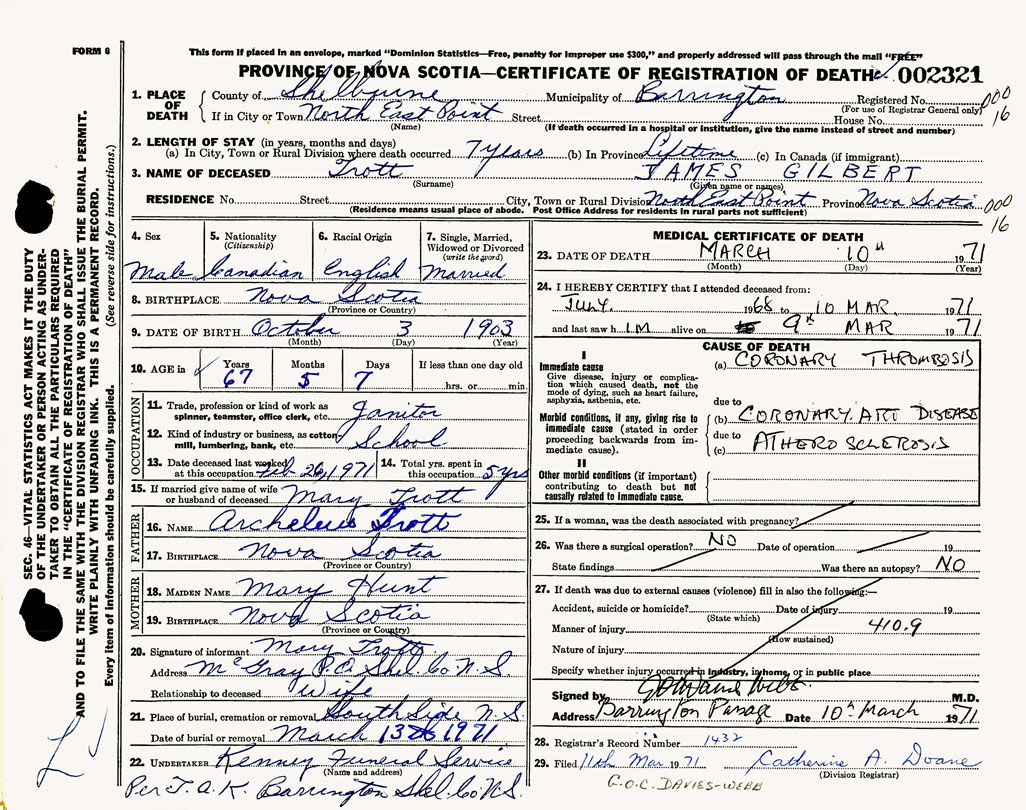 FORM 6
This form if placed in an envelope, marked "Dominion Statistics—Free, penalty for improper use $300," and properly addressed will pass through the mail "FREE"
PROVINCE OF NOVA SCOTIA—CERTIFICATE OF REGISTRATION OF DEATH 002321
1. PLACE OF DEATH
County of Shelburne Municipality of Barrington Registered No. 000
(For use of Registrar General only) 16
If in City or Town North East Point Street House No.
(Name) (If death occurred in a hospital or institution, give the name instead of street and number)
2. LENGTH OF STAY (in years, months and days)
(a) In City, Town or Rural Division where death occurred 7 years (b) In Province Lifetime (c) In Canada (if immigrant)
3. NAME OF DECEASED Trott JAMES GILBERT
(Surname) (Given name or names)
RESIDENCE No. Street City, Town or Rural Division North East Point Province Nova Scotia 000
(Residence means usual place of abode. Post Office Address for residents in rural parts not sufficient) 16
SEC. 46—VITAL STATISTICS ACT MAKES IT THE DUTY
OF THE UNDERTAKER OR PERSON ACTING AS UNDER-
TAKER TO OBTAIN ALL THE PARTICULARS REQUIRED
IN THE "CERTIFICATE OF REGISTRATION OF DEATH"
AND TO FILE THE SAME WITH THE DIVISION REGISTRAR WHO SHALL ISSUE THE BURIAL PERMIT.
WRITE PLAINLY WITH UNFADING INK. THIS IS A PERMANENT RECORD.
Every item of information should be carefully supplied. (See reverse side for instructions.)
4. Sex 5. Nationality 6. Racial Origin 7. Single, Married,
(Citizenship) Widowed or Divorced
(write the word)
Male Canadian English Married
8. BIRTHPLACE Nova Scotia
(Province or Country)
9. DATE OF BIRTH October 3 1903
(Month) (Day) (Year)
10. AGE in Years Months Days If less than one day old
67 5 7 hrs. or min.
OCCUPATION
11. Trade, profession or kind of work as
spinner, teamster, office clerk, etc. Janitor
12. Kind of industry or business, as cotton
mill, lumbering, bank, etc. School
13. Date deceased last worked
at this occupation Feb 26, 1971
14. Total yrs. spent in
this occupation 5 yrs
15. If married give name of wife
or husband of deceased Mary Trott
FATHER
16. NAME Archeleus Trott
17. BIRTHPLACE Nova Scotia
(Province or Country)
MOTHER
18. MAIDEN NAME Mary Hunt
19. BIRTHPLACE Nova Scotia
(Province or Country)
20. Signature of informant Mary Trott
Address McGray P.O. Shel. Co N.S.
Relationship to deceased Wife
21. Place of burial, cremation or removal South Side N.S.
Date of burial or removal March 13 1971
22. UNDERTAKER Kenney Funeral Service
(Name and address)
Per J.A.K. Barrington Shel. Co N.S.
MEDICAL CERTIFICATE OF DEATH
23. DATE OF DEATH MARCH 10th 1971
(Month) (Day) (Year)
24. I HEREBY CERTIFY that I attended deceased from:
1968 to 10 MAR. 1971
and last saw h IM alive on 9th MAR 1971
CAUSE OF DEATH
I
Immediate cause
Give disease, injury or complica-
tion which caused death, not the
mode of dying, such as heart failure,
asphyxia, asthenia, etc.
(a) CORONARY THROMBOSIS
due to
Morbid conditions, if any, giving rise to
immediate cause (stated in order
proceeding backwards from im-
mediate cause).
(b) CORONARY ART DISEASE
due to
(c) ATHEROSCLEROSIS
II
Other morbid conditions (if important)
contributing to death but not
causally related to immediate cause.
25. If a woman, was the death associated with pregnancy?
26. Was there a surgical operation? NO Date of operation 19
State findings Was there an autopsy? NO
27. If death was due to external causes (violence) fill in also the following:—
Accident, suicide or homicide? Date of injury 19
(State which)
Manner of injury 410.9
(How sustained)
Nature of injury
Specify whether injury occurred in industry, in home, or in public place
Signed by M.D.
Address Barrington Passage Date 10th March 1971
28. Registrar's Record Number 1432
29. Filed 11th Mar 1971 Catherine A. Doane
(Division Registrar)
G.O.C. DAVIES-WEBB